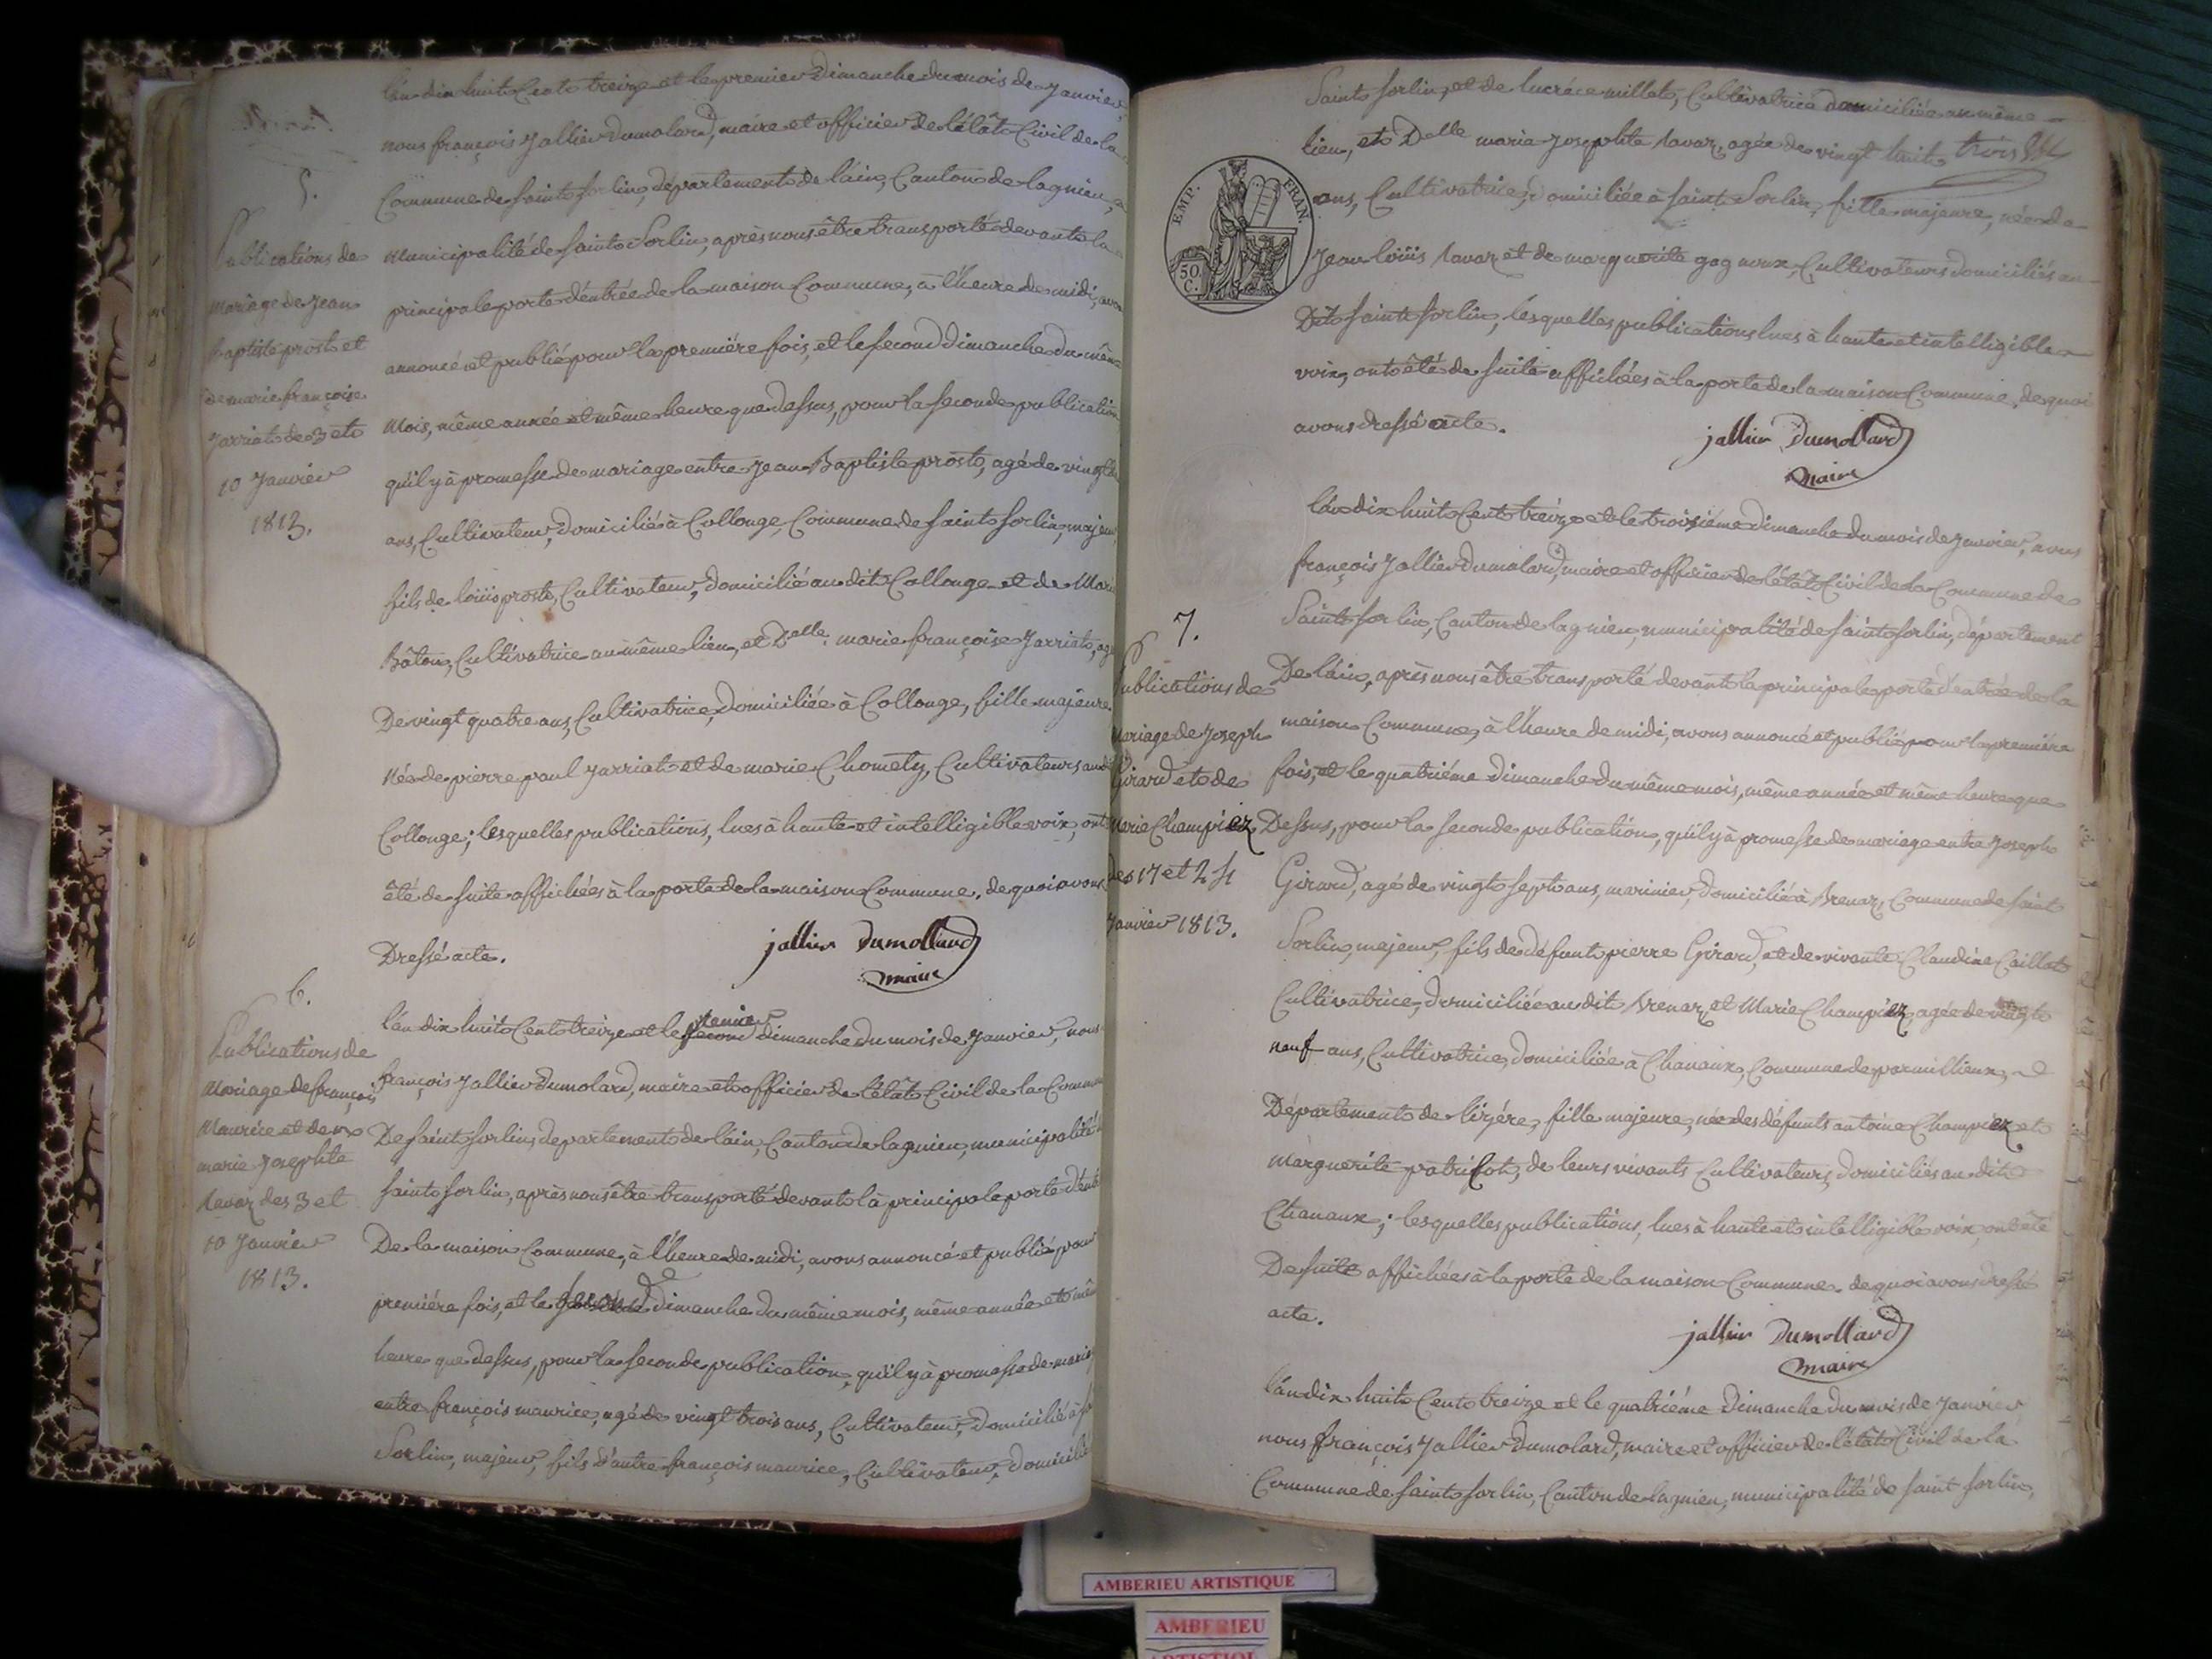 l'an dix huit Cent treize et le premier Dimanche du mois de Janvier,
nous françois Jallier Dumolard, maire et officier de l'état Civil de la
Commune de saint sorlin, département de l'ain, Canton de lagnieu,
municipalité de saint Sorlin, après nous être transporté devant la
principale porte d'entrée de la maison Commune, à l'heure de midi, avons
annoncé et publié pour la première fois, et le second dimanche du même
mois, même année et même heure que dessus, pour la seconde publication
qu'il y à promesse de mariage entre Jean Baptiste prost, agé de vingt
ans, Cultivateur, domicilié à Collonge, Commune de saint sorlin, majeur
fils de loüis prost, Cultivateur, domicilié au dit Collonge et de Marie
Bâton, Cultivatrice au même lieu, et Delle marie françoise Jarriat, agée
De vingt quatre ans, Cultivatrice, domiciliée à Collonge, fille majeure
née de pierre paul Jarriat et de marie Chomety, Cultivateurs au dit
Collonge; lesquelles publications, lues à haute et intelligible voix, ont
été de suite affichées à la porte de la maison Commune. de quoi avons
Dressé acte.
jallier Dumollard
maire
5.
Publications de
mariage de Jean
baptiste prost et
de marie françoise
Jarriat des 3 et
10 Janvier
1813.
6.
Publications de
Mariage de françois
Maurice et de
marie Josephte
Ravaz des 3 et
10 Janvier
1813.
l'an dix huit Cent treize et le premier dimanche du mois de Janvier, nous
françois Jallier Dumolard, maire et officier de l'état Civil de la Commune
De saint sorlin, département de l'ain, Canton de lagnieu, municipalité
saint sorlin, après nous être transporté devant là principale porte d'entrée
De la maison Commune, à l'heure de midi, avons annoncé et publié pour
première fois, et le second dimanche du même mois, même année et même
heure que dessus, pour la seconde publication, qu'il y à promesse de mariage
entre françois maurice, agé de vingt trois ans, Cultivateur, domicilié à
Sorlin, majeur, fils d'autre françois maurice, Cultivateur, domicilié
Saint sorlin, et de lucréce millet, Cultivatrice domiciliée au même
lieu, et Delle marie Josephte Ravaz, agée de vingt huit trois
ans, Cultivatrice, domiciliée à saint Sorlin, fille majeure, née de
Jean loüis Ravaz et de marguerite gagnoux, Cultivateurs domiciliés au
Dit saint sorlin, lesquelles publications lues à haute et intelligible
voix, ont été de suite affichées à la porte de la maison Commune, de quoi
avons dressé acte.
jallier Dumollard
maire
EMP. FRAN.
50.
C.
7.
Publications de
Mariage de Joseph
Girard et de
Marie Champiez
des 17 et 24
Janvier 1813.
l'an dix huit Cent treize et le troisiéme dimanche du mois de Janvier, nous
françois Jallier Dumolard, maire et officier de l'état Civil de la Commune de
Saint sorlin, Canton de lagnieu, municipalité de saint sorlin, département
De l'ain, après nous être transporté devant la principale porte d'entrée de la
maison Commune, à l'heure de midi, avons annoncé et publié pour la première
fois, et le quatriéme dimanche du même mois, même année et même heure que
Dessus, pour la seconde publication, qu'il y à promesse de mariage entre Joseph
Girard, agé de vingt sept ans, marinier, domicilié à Brenaz, Commune de saint
Sorlin, majeur, fils de defunt pierre Girard, et de vivante Claudine Caillot
Cultivatrice, domiciliée au dit Brenaz, et Marie Champiez, agée de vingt
neuf ans, Cultivatrice, domiciliée à Chanaux, Commune de parmillieux,
Département de l'izére, fille majeure, née des défunts antoine Champiez et
marguerite patricot, de leurs vivants Cultivateurs, domiciliés au dit
Chanaux; lesquelles publications, lues à haute et intelligible voix, ont été
De suite affichées à la porte de la maison Commune. de quoi avons dressé
acte.
jallier Dumollard
maire
l'an dix huit Cent treize et le quatriéme dimanche du mois de Janvier
nous françois Jallier Dumolard, maire et officier de l'état Civil de la
Commune de saint sorlin, Canton de lagnieu, municipalité de saint sorlin,
AMBERIEU ARTISTIQUE
AMBERIEU
ARTISTIQUE